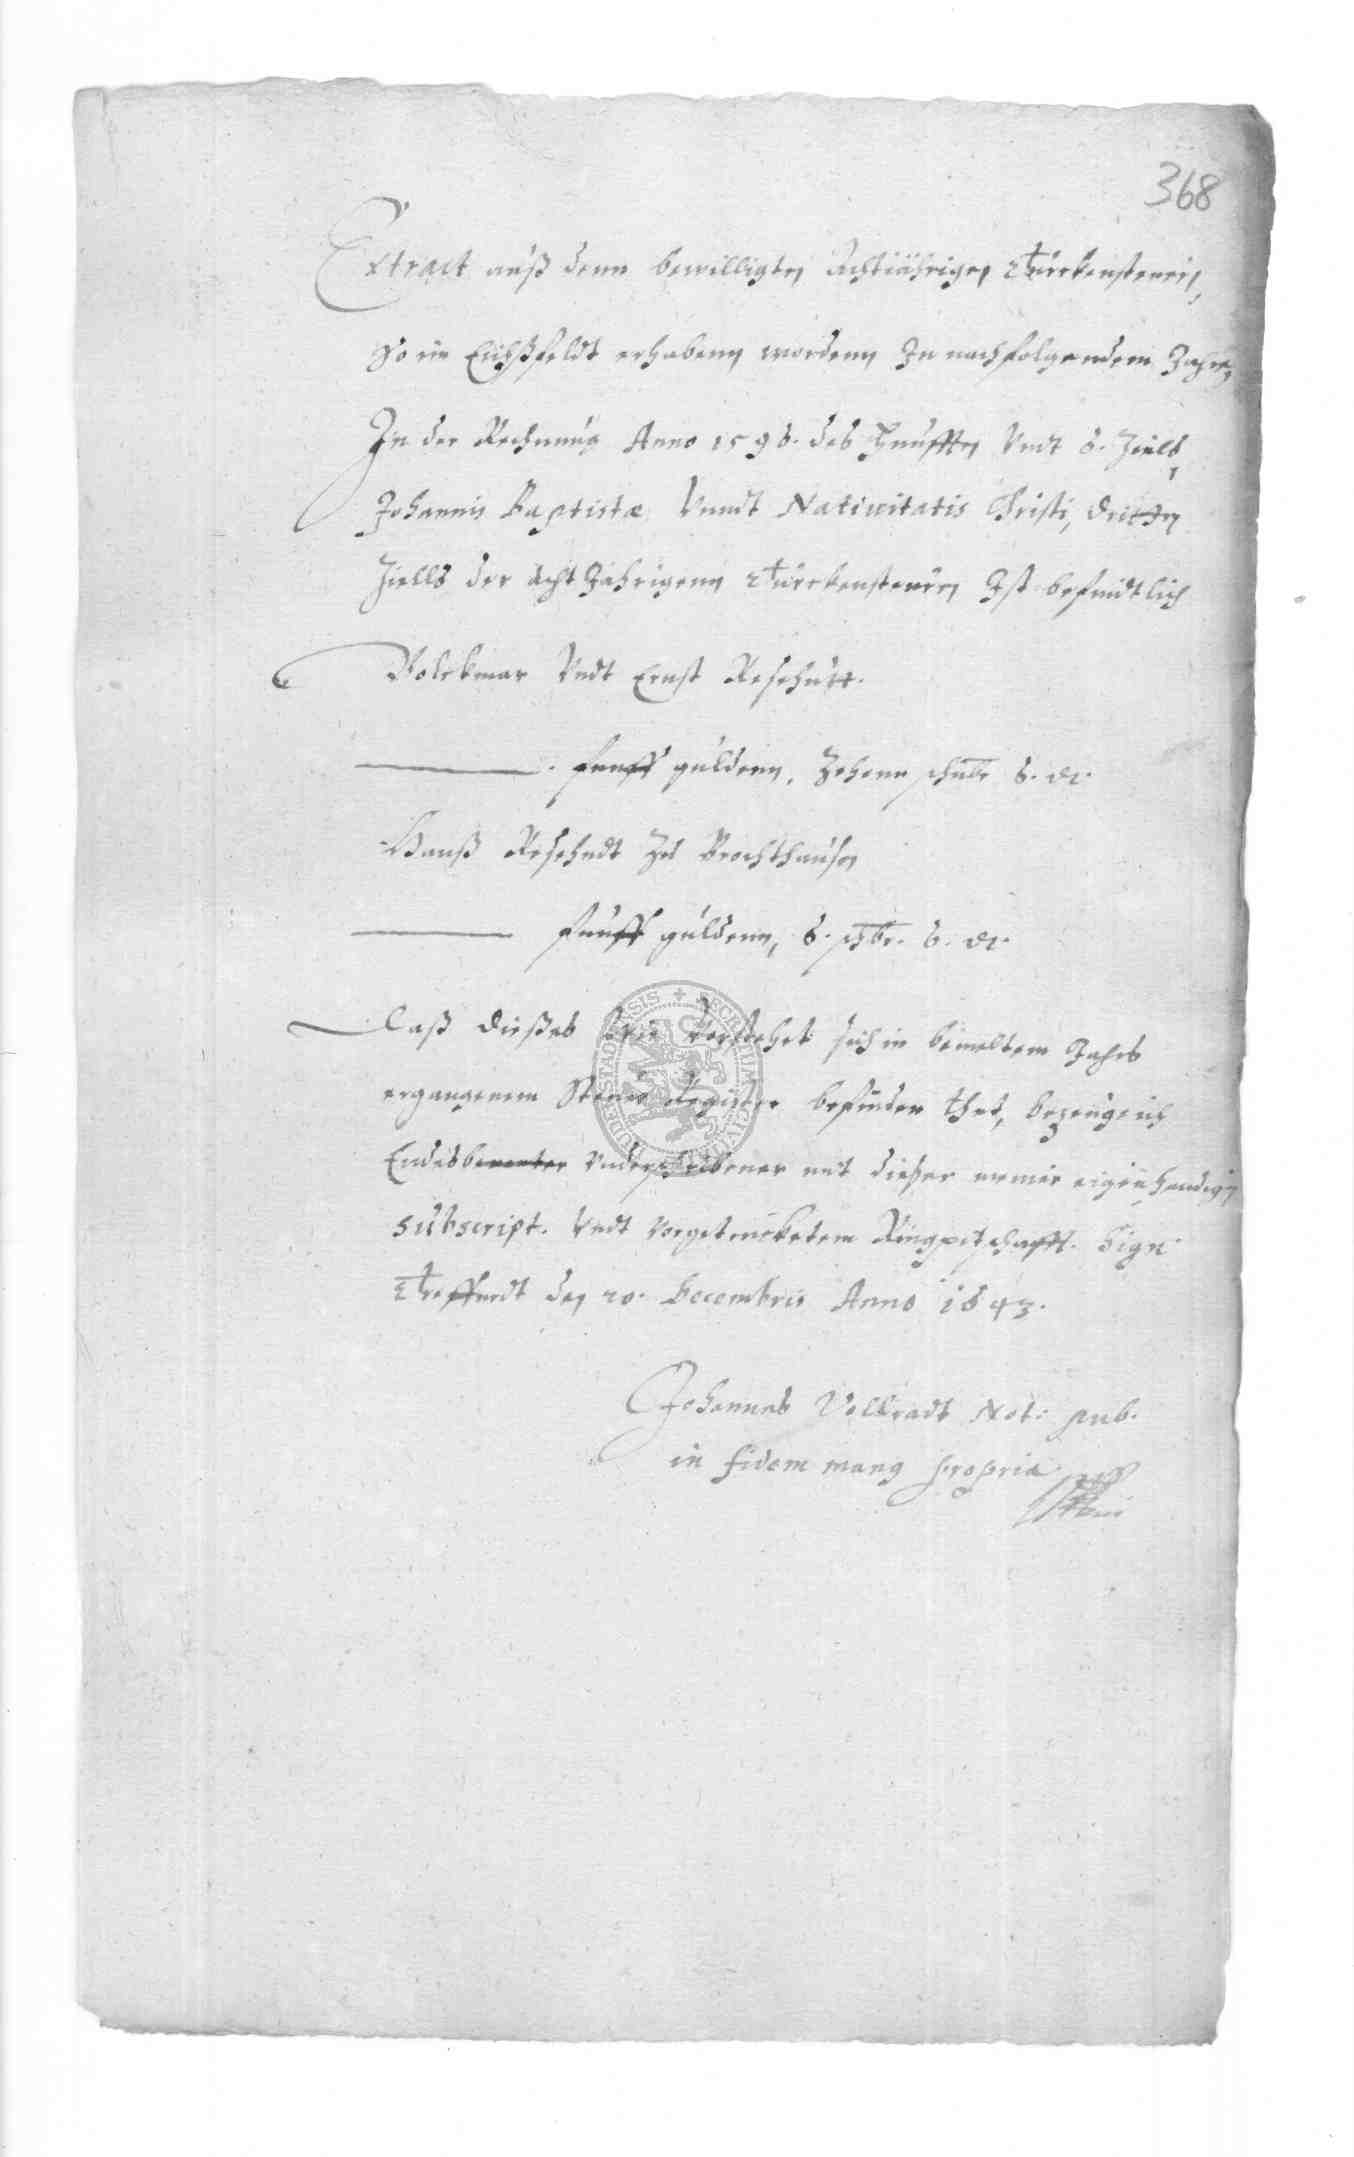 368
Extract auß denn bewilligten Achtiährigen Türckensteuern,
So im Eichßfeldt erhabenn wordenn In nachfolgendem Jahre,
In der Rechnung Anno 1596. des funfften Vndt 6. Ziels,
Johannis Baptistæ Vnndt Nativitatis Christi, dritten
Ziells der acht Jahrigenn Türckensteuren Ist befindtlich
Volckmar Vndt Ernst Resehutt.
funff guldenn, Zehenn schnbr 6. d.
Hanß Resehudt Zu Brochthausen
funff guldenn, 6. schbr. 6. d.
Daß dießes wie Vorstehet sich in bemeltem Jahrs
ergangenem Steuer Register befinden thet, bezeuge ich
Endesbenenter Underschribener mit dießer meiner eigenhendigen
subscript. Vndt vorgetrucketem Ringpitschafft. Sign
Treffurdt den 20. Decembris Anno 1643.
Johannes Vollradt Not: pub.
in fidem manu propria